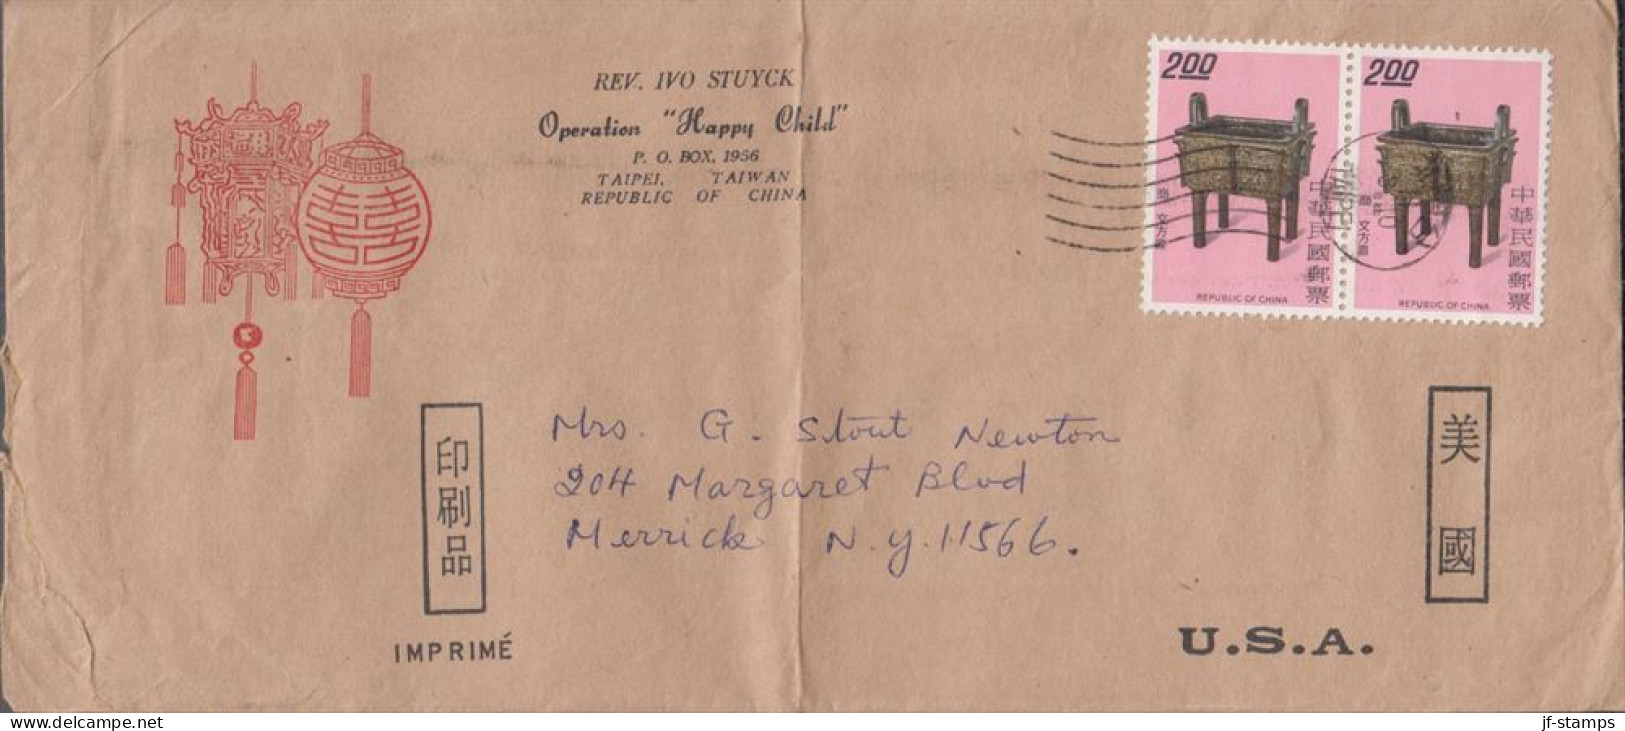 REV. IVO STUYCK
Operation "Happy Child"
P. O. BOX, 1956
TAIPEI, TAIWAN
REPUBLIC OF CHINA
2.00
商 文方鼎
中華民國郵票
REPUBLIC OF CHINA
2.00
商 文方鼎
中華民國郵票
REPUBLIC OF CHINA
印刷品
IMPRIMÉ
Mrs. G. Stout Newton
204 Margaret Blvd
Merrick N.Y. 11566.
美國
U.S.A.
delcampe.net
jf-stamps